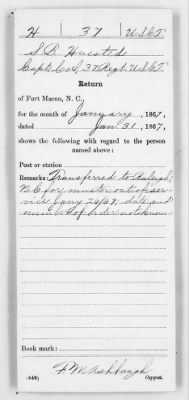 H 37 U.S.C.T.
S. B. Huested
Capt., Co. H, 37 Regt. U.S.C.T.
Return
of Fort Macon, N. C.,
for the month of January, 1867,
dated Jan 31, 1867,
shows the following with regard to the person
named above:
Post or station
Remarks: Transferred to Raleigh,
N.C. for muster out of ser-
vice Jany 26/67, date and
number of order not shown
Book mark:
F M Ashbaugh
(549) Copyist.